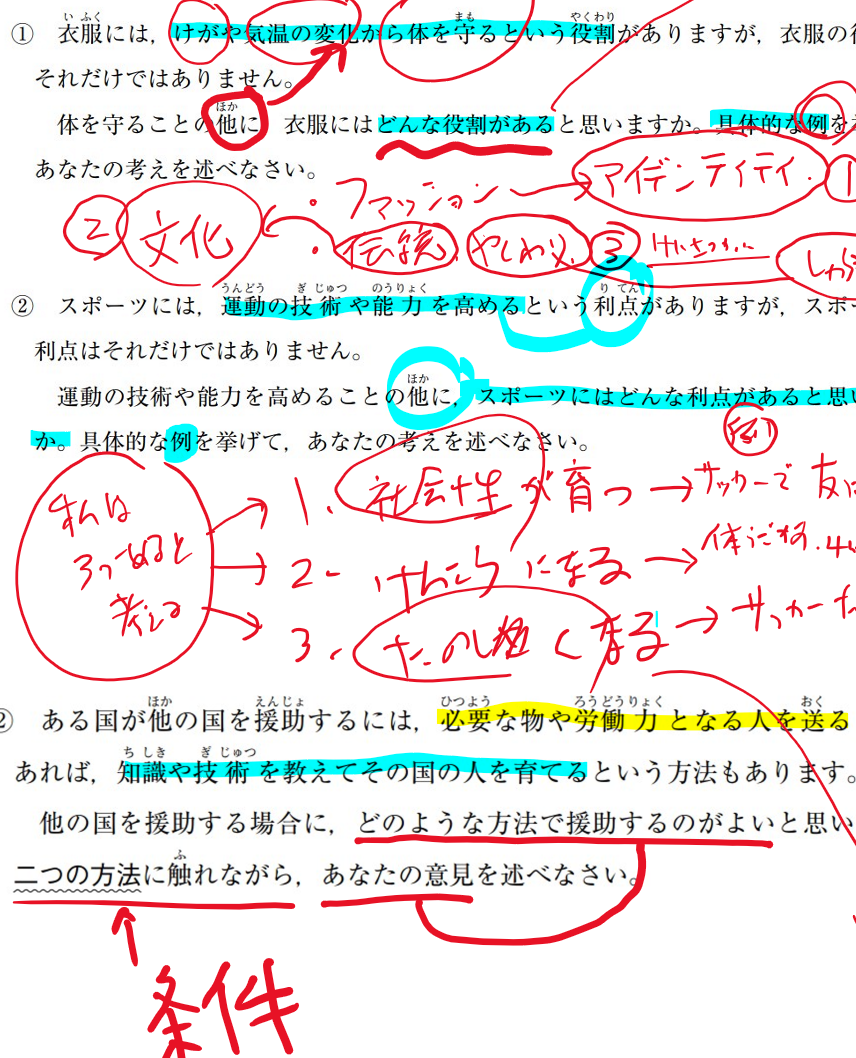 ① 衣服には，けがや気温の変化から体を守るという役割がありますが，衣服の
い ふく まも やくわり
それだけではありません。
体を守ることの他に，衣服にはどんな役割があると思いますか。具体的な例を
ほか
あなたの考えを述べなさい。
・ファッション アイデンティティ. 1
2 文化 ・伝統 3
② スポーツには，運動の技術や能力を高めるという利点がありますが，スポー
うんどう ぎ じゅつ のうりょく り てん
利点はそれだけではありません。
運動の技術や能力を高めることの他に，スポーツにはどんな利点があると思い
ほか
か。具体的な例を挙げて，あなたの考えを述べなさい。
例
私は
3つあると
考える
1. 社会性が育つ → サッカーで友
2- けんこうになる →
3. たのしくなる → サッカー
② ある国が他の国を援助するには，必要な物や労働力となる人を送る
ほか えんじょ ひつよう ろうどうりょく おく
あれば，知識や技術を教えてその国の人を育てるという方法もあります。
ち しき ぎ じゅつ
他の国を援助する場合に，どのような方法で援助するのがよいと思い
二つの方法に触れながら，あなたの意見を述べなさい。
ふ
条件